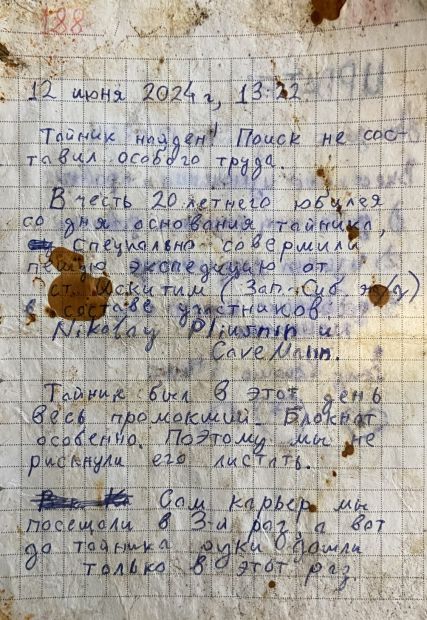 188
12 июня 2024 г, 13:22
Тайник найден! Поиск не сос-
тавил особого труда.
В честь 20-летнего юбилея
со дня основания тайника,
специально совершили
пешую экспедицию от
ст. Искитим (Зап.-Сиб. ж/д)
в составе участников
Nikolay Pliusnin и
CaveMann.
Тайник был в этот день
весь промокший. Блокнот
особенно. Поэтому мы не
рискнули его листать.
Сам карьер мы
посещали в 3-й раз, а вот
до тайника руки дошли
только в этот раз.